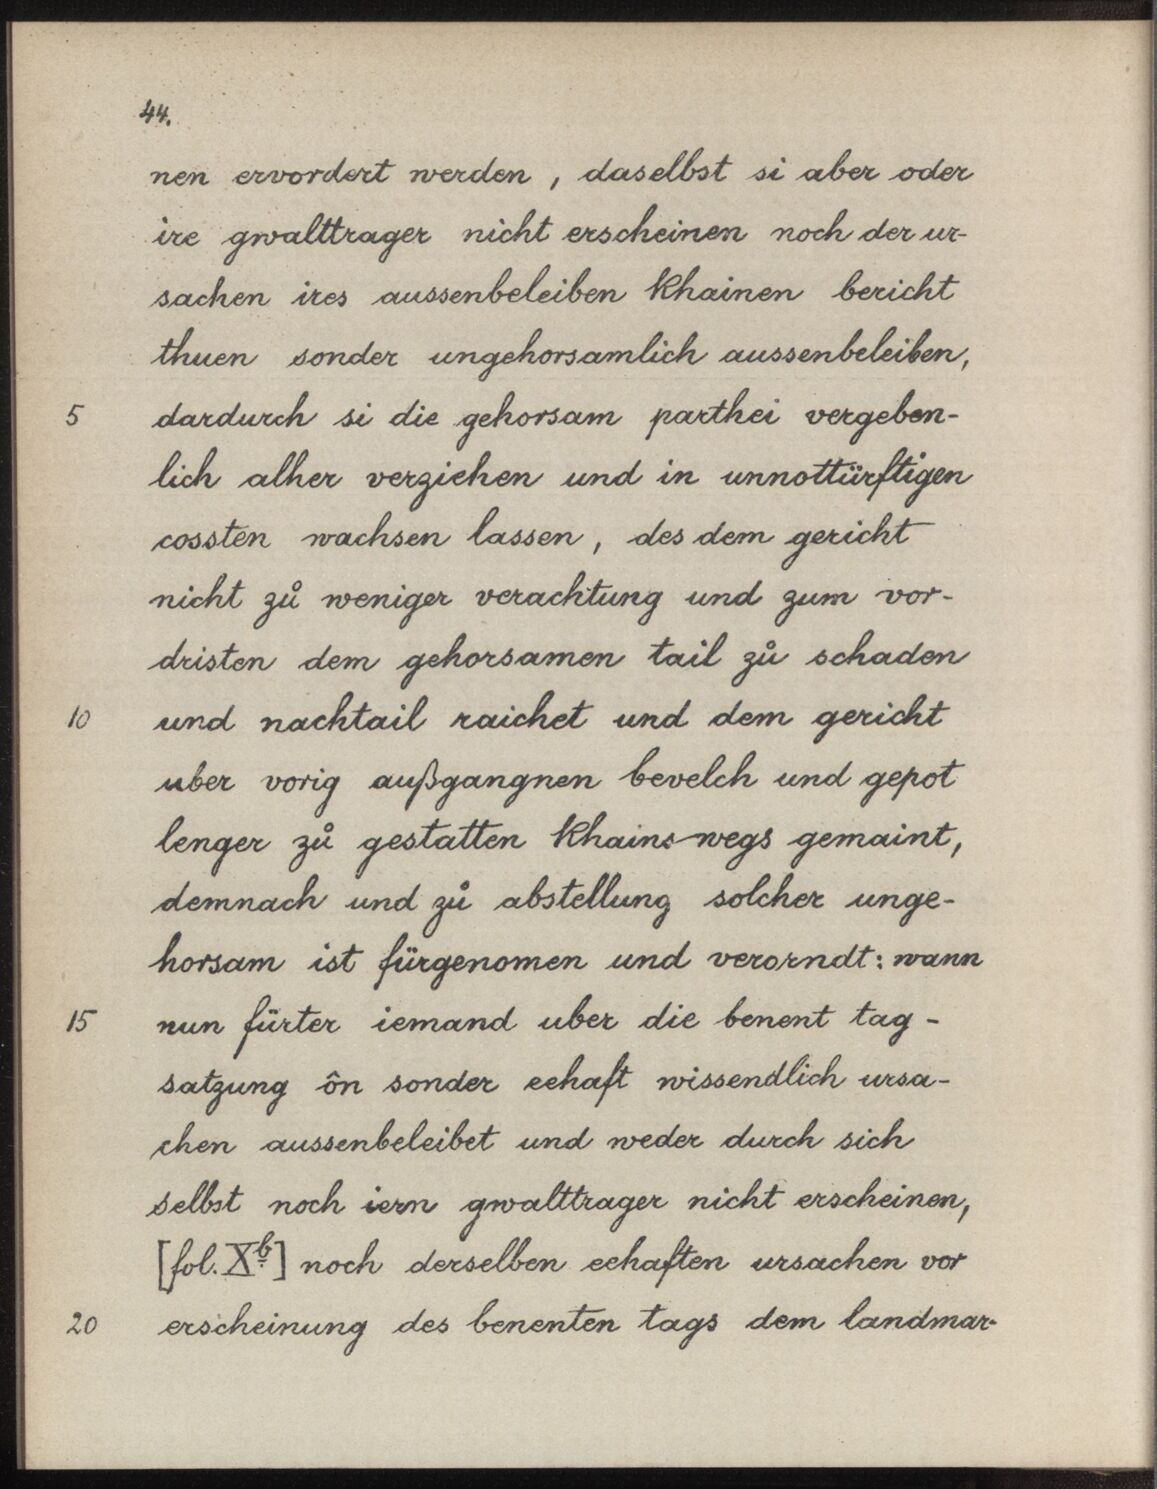 44.
nen ervordert werden, daselbst si aber oder
ire gwalttrager nicht erscheinen noch der ur-
sachen ires aussenbeleiben khainen bericht
thuen sonder ungehorsamlich aussenbeleiben,
5 dardurch si die gehorsam parthei vergeben-
lich alher verziehen und in unnottürftigen
cossten wachsen lassen, des dem gericht
nicht zů weniger verachtung und zum vor-
dristen dem gehorsamen tail zů schaden
10 und nachtail raichet und dem gericht
uber vorig außgangnen bevelch und gepot
lenger zů gestatten khains wegs gemaint,
demnach und zů abstellung solcher unge-
horsam ist fürgenomen und verorndt: wann
15 nun fürter iemand uber die benent tag-
satzung ôn sonder eehaft wissendlich ursa-
chen aussenbeleibet und weder durch sich
selbst noch iern gwalttrager nicht erscheinen,
[fol. Xb] noch derselben eehaften ursachen vor
20 erscheinung des benenten tags dem landmar-